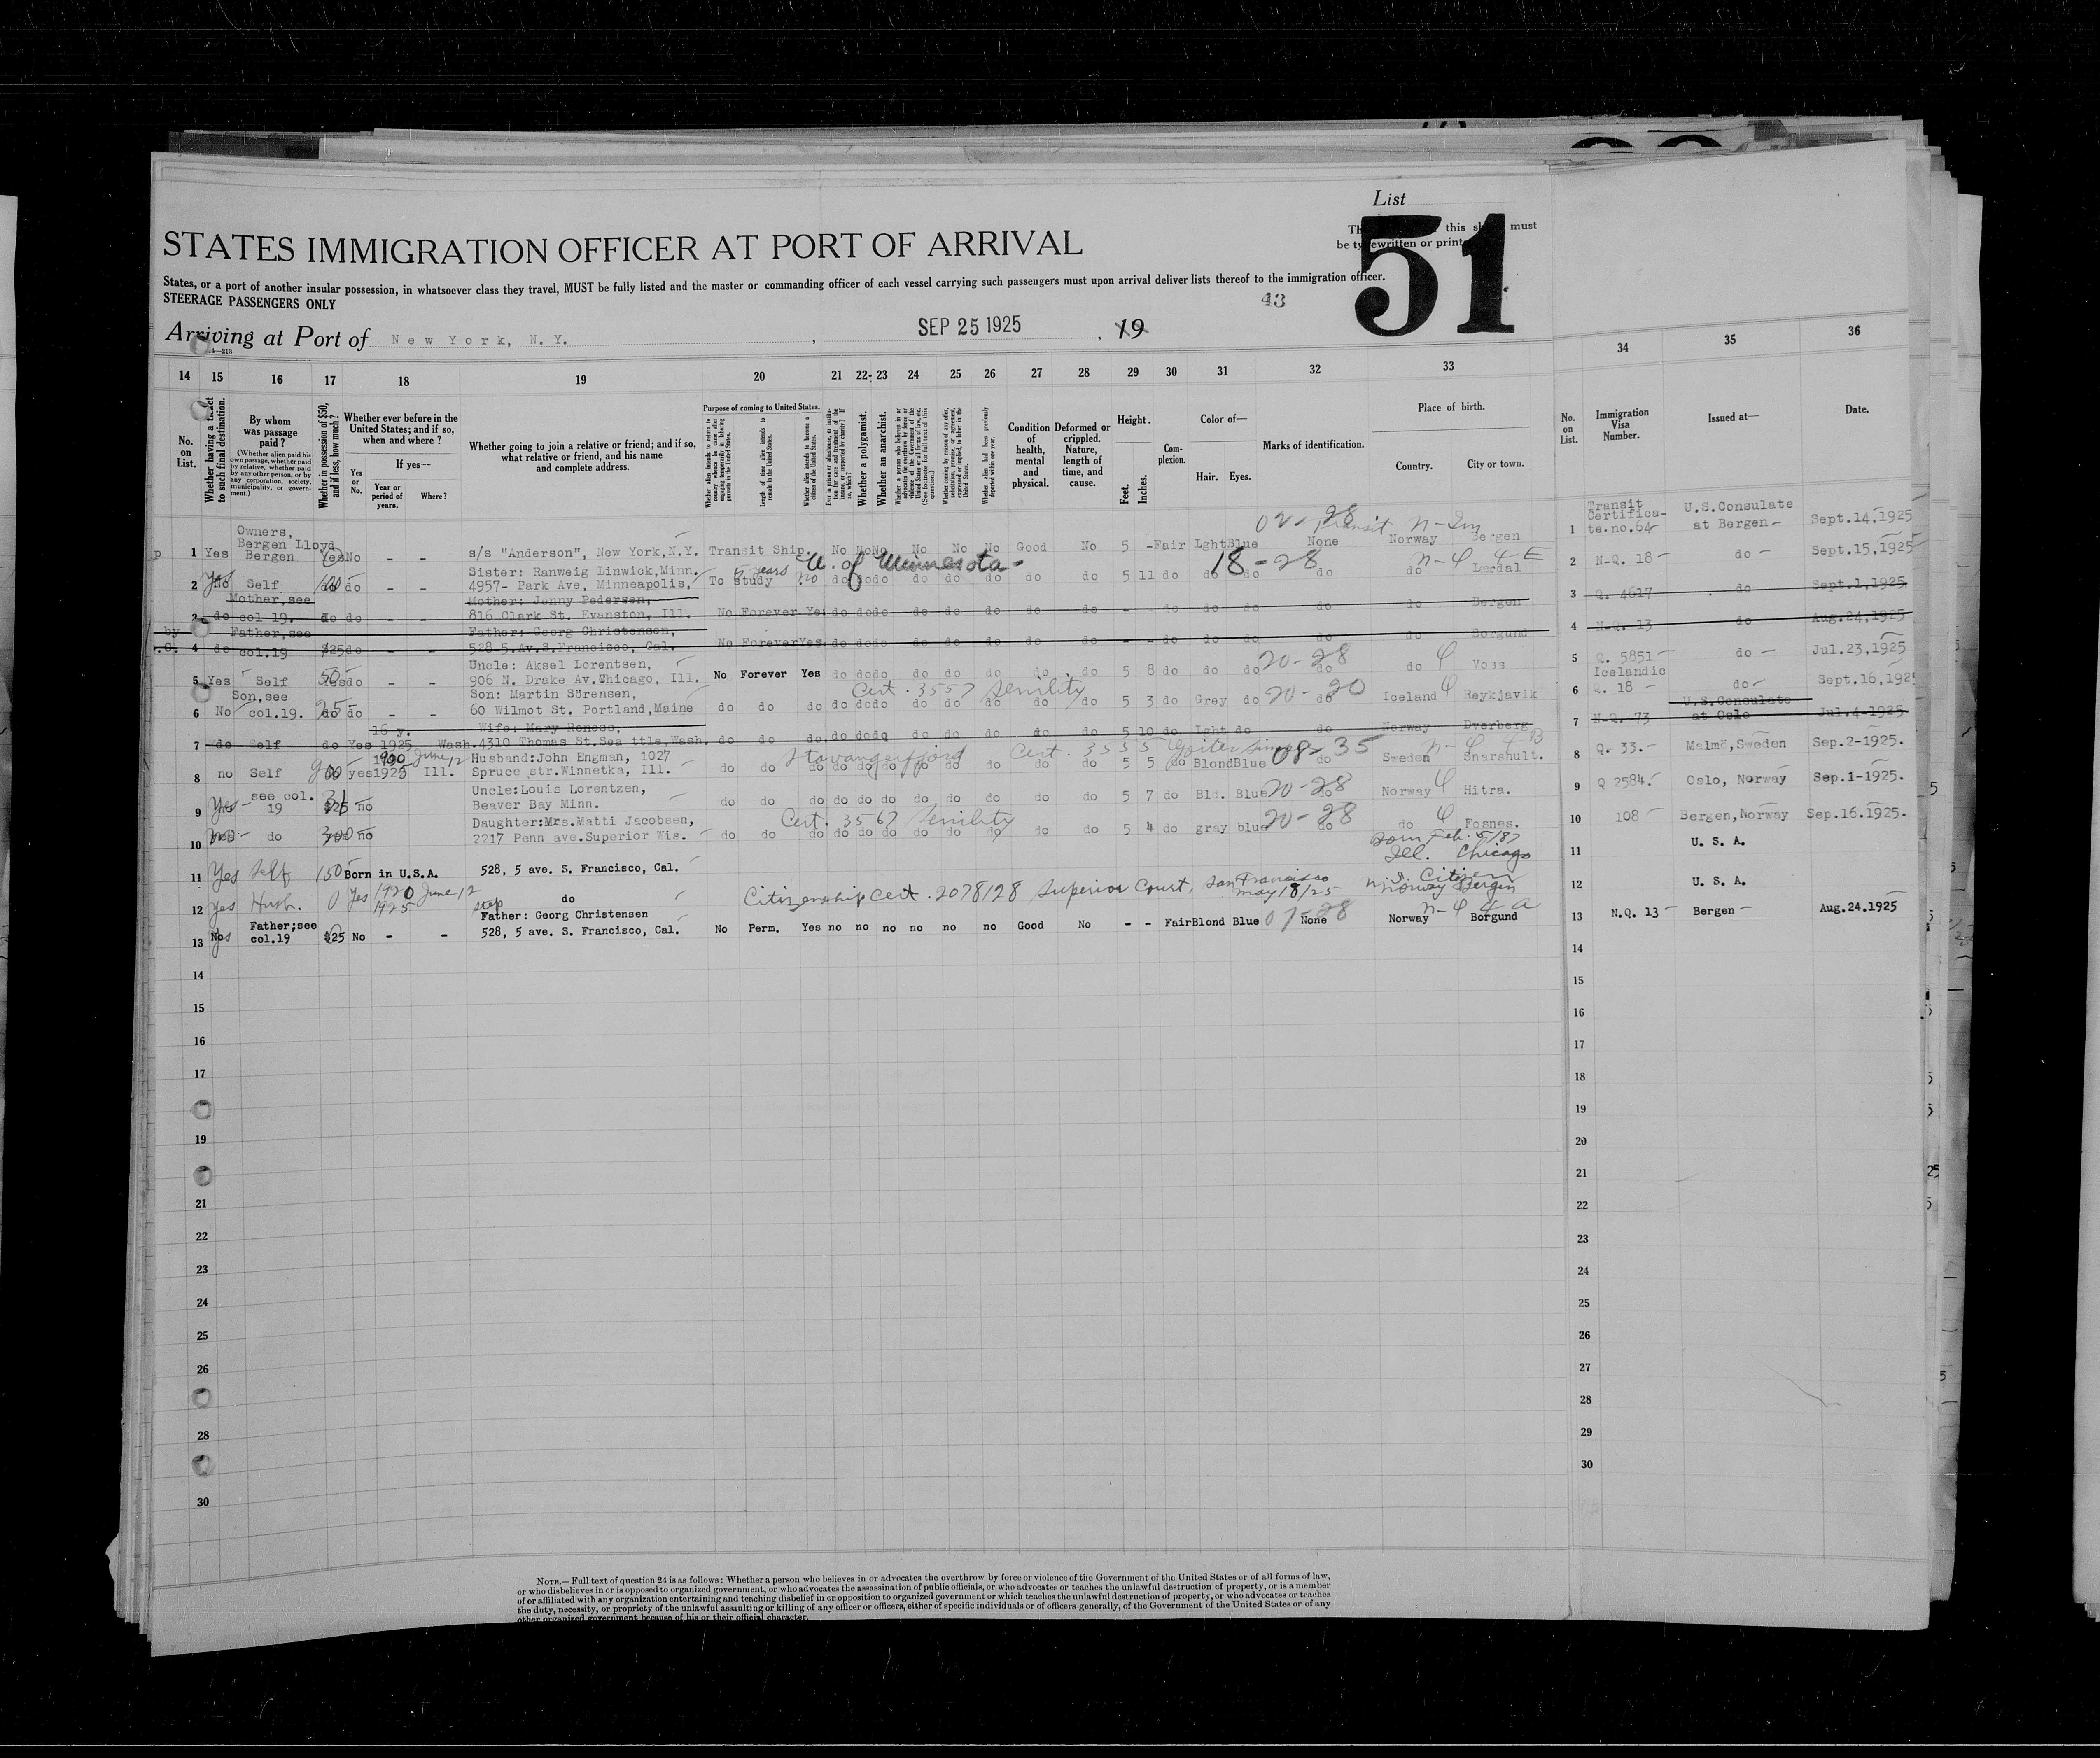 List
51
STATES IMMIGRATION OFFICER AT PORT OF ARRIVAL
be typewritten or print
this must
States, or a port of another insular possession, in whatsoever class they travel, MUST be fully listed and the master or commanding officer of each vessel carrying such passengers must upon arrival deliver lists thereof to the immigration officer.
STEERAGE PASSENGERS ONLY
43
Arriving at Port of New York, N. Y., SEP 25 1925, 19
14 15 16 17 18 19 20 21 22 23 24 25 26 27 28 29 30 31 32 33 34 35 36
No. on List.
Whether having a ticket to such final destination.
By whom was passage paid?
(Whether alien paid his own passage, whether paid by relative, whether paid by any other person, or by any corporation, society, municipality, or government.)
Whether in possession of $50, and if less, how much?
Whether ever before in the United States; and if so, when and where?
Yes or No.
If yes—
Year or period of years.
Where?
Whether going to join a relative or friend; and if so, what relative or friend, and his name and complete address.
Purpose of coming to United States.
Length of time alien intends to remain in the United States.
Whether alien intends to become a citizen of the United States.
Whether a polygamist.
Whether an anarchist.
Condition of health, mental and physical.
Deformed or crippled. Nature, length of time, and cause.
Height.
Feet. Inches.
Complexion.
Color of—
Hair. Eyes.
Marks of identification.
Place of birth.
Country. City or town.
No. on List.
Immigration Visa Number.
Issued at—
Date.
02-28 Transit
1 Yes Owners, Bergen Lloyd Bergen Yes No - - s/s "Anderson", New York, N.Y. Transit Ship. No No No No No No Good No 5 - Fair Lght Blue None Norway Bergen 1 Transit Certificate.no.64 U.S.Consulate at Bergen Sept.14,1925
2 Self do - - Sister: Ranweig Linwick, Minn. 4957- Park Ave, Minneapolis, To study 5 years no U. of Minnesota do do do do do do do do 5 11 do do do 18-28 do do Lerdal 2 N-Q. 18 do Sept.15,1925
3 do Mother, see col 19. do do - - Mother: Jenny Pedersen, 816 Clark St. Evanston, Ill. No Forever Yes do do do do do do do do - do do do do do Bergen 3 Q. 4617 do Sept.1,1925
4 do Father, see col.19 $25 do - - Father: Georg Christensen, 528-5.Av.S.Francisco, Cal. No Forever Yes do do do do do do do do - - do do do do do Borgund 4 N-Q. 13 do Aug.24,1925
5 Yes Self 50 Yes do - - Uncle: Aksel Lorentsen, 906 N. Drake Av.Chicago, Ill. No Forever Yes do do do do do do do do 5 8 do do do 20-28 do do Voss 5 Q. 5851 do Jul.23,1925
6 No Son, see col.19. do do - - Son: Martin Sörensen, 60 Wilmot St. Portland, Maine do do do do do do do do do do do 5 3 do Grey do 20-20 do Iceland Reykjavik 6 Icelandic Q. 18 do Sept.16,1925
Cert. 3557 Senility
7 do Self do Yes 16 y. 1925 Wash. Wife: Mary Roness, 4310 Thomas St.Sea ttle, Wash. do do do do do do do do do do do 5 10 do Lght do do Norway Dverberg 7 N-Q. 73 U.S.Consulate at Oslo Jul.4-1925
8 no Self yes 1925 June 12 Ill. Husband: John Engman, 1027 Spruce str.Winnetka, Ill. do do do do do do do do do do do 5 5 do Blond Blue 08-35 do Sweden Snarshult. 8 Q. 33. Malmö, Sweden Sep.2-1925.
Stavangerfjord Cert. 3555 Goiter simple
9 Yes see col. 19 $25 no Uncle: Louis Lorentzen, Beaver Bay Minn. do do do do do do do do do do do 5 7 do Bld. Blue 20-28 do Norway Hitra. 9 Q 2584. Oslo, Norway Sep.1-1925.
10 do no Daughter: Mrs. Matti Jacobsen, 2217 Penn ave.Superior Wis. do do do do do do do do do do do 5 4 do gray blue 20-28 do do Fosnes. 10 108 Bergen, Norway Sep.16.1925.
Cert. 3567 Senility
11 Yes Self 150 Born in U.S.A. 528, 5 ave. S. Francisco, Cal. Born Feb. Ill. Chicago 11 U. S. A.
12 Yes Husb. 0 Yes 1920 1925 June 12 do Citizenship Cert. 2078128 Superior Court, San Francisco May 18/25 U.S. Citizen Norway Bergen 12 U. S. A.
13 No Father; see col.19 $25 No - - step Father: Georg Christensen 528, 5 ave. S. Francisco, Cal. No Perm. Yes no no no no no no Good No - - Fair Blond Blue 07-28 None Norway Borgund 13 N.Q. 13 Bergen Aug.24.1925
14
15
16
17
18
19
20
21
22
23
24
25
26
27
28
29
30
NOTE.— Full text of question 24 is as follows: Whether a person who believes in or advocates the overthrow by force or violence of the Government of the United States or of all forms of law,
or who disbelieves in or is opposed to organized government, or who advocates the assassination of public officials, or who advocates or teaches the unlawful destruction of property, or is a member
of or affiliated with any organization entertaining and teaching disbelief in or opposition to organized government or which teaches the unlawful destruction of property, or who advocates or teaches
the duty, necessity, or propriety of the unlawful assaulting or killing of any officer or officers, either of specific individuals or of officers generally, of the Government of the United States or of any
other organized government because of his or their official character.